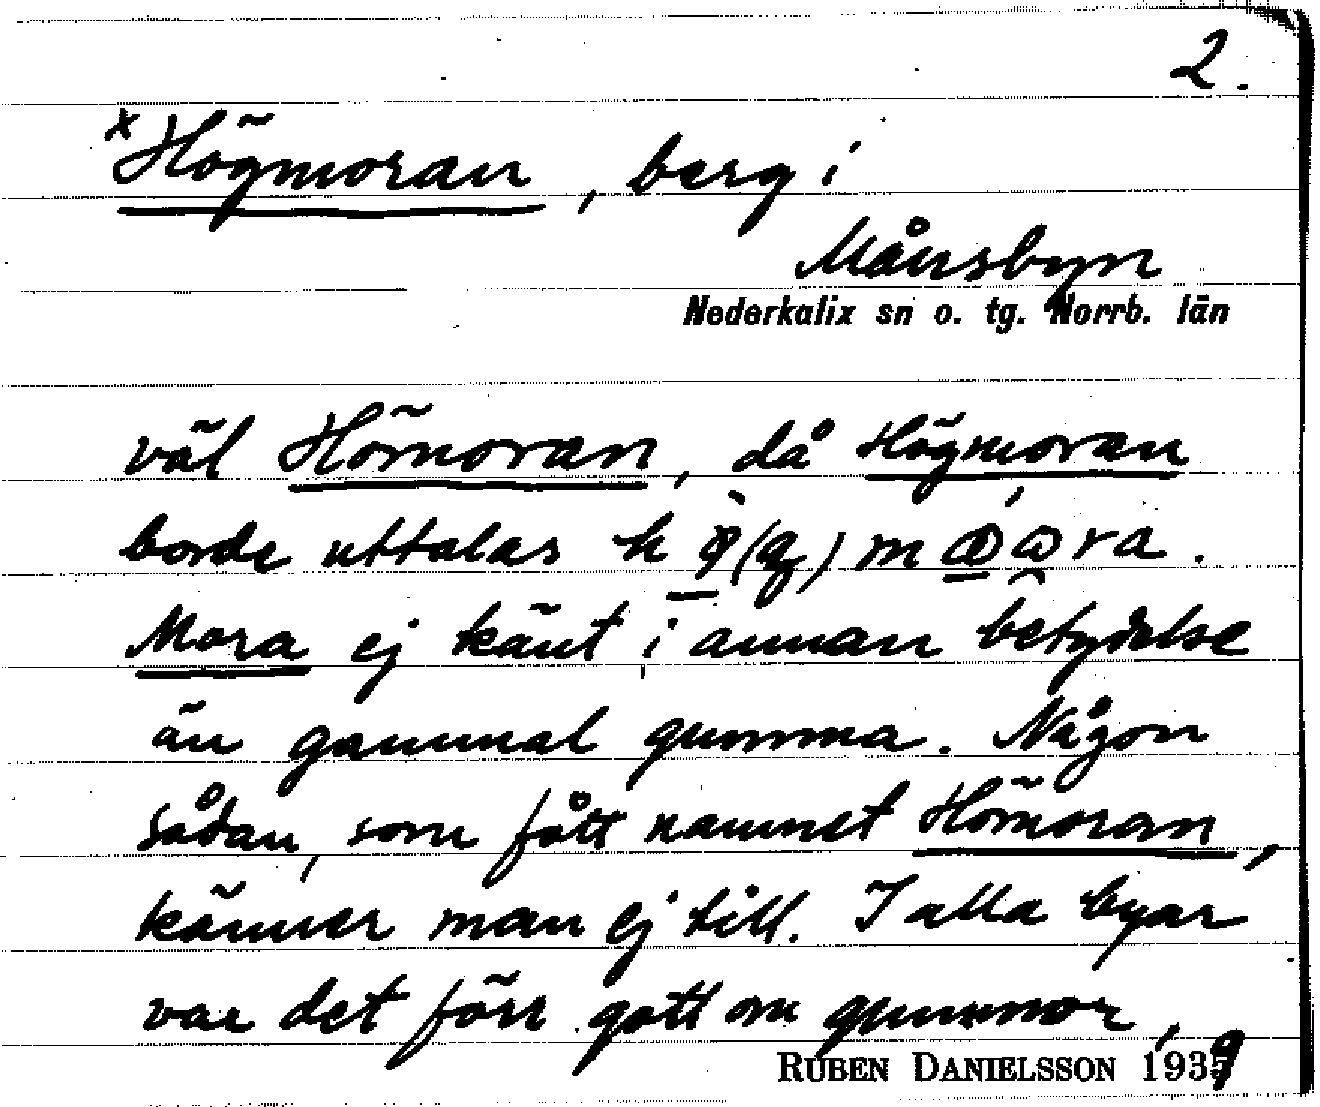 2.
×Högmoran, berg i
Månsbyn
Nederkalix sn o. tg. Norrb. län
väl Hömoran, då Högmoran
borde uttalas
Mora ej känt i annan betydelse
än gammal gumma. Någon
sådan, som fått namnet Hömoran,
känner man ej till. I alla byar
var det förr gott om gummor,
RUBEN DANIELSSON 1939